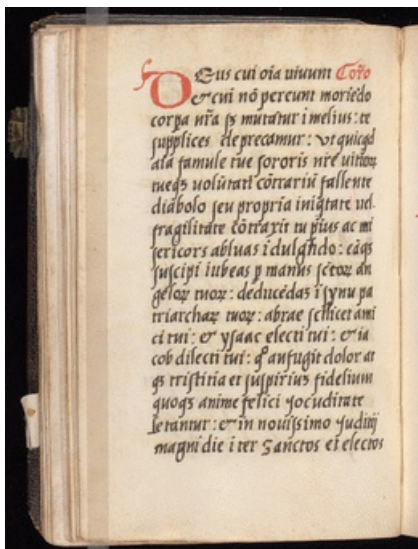 DEus cui oĩa uiuunt Coĩo
& cui nõ pereunt moriẽdo
corpa nr̃a sʒ mutãtur i melius: te
supplices deprecamur: vt quicqd
aĩa famule tue sororis nr̃e uitioꝝ
tueqʒ volũtati cõtrariũ fallente
diabolo seu propria iniqtate uel
fragilitate cõtraxit tu pius ac mi
sericors abluas i dulgẽdo: eãqʒ
suscipi iubeas p manus sctoꝝ an
geloꝝ tuoꝝ: deducẽdas i synu pa
triarchaꝝ tuoꝝ: abrae scilicet ami
ci tui: & ysaac electi tui: & ia
cob dilecti tui: q̊ aufugit dolor at
qʒ tristitia et suspirius fidelium
quoqʒ anime felici Jocuditate
letantur: & in nouissimo Juditij
magni die i ter Sanctos et electos